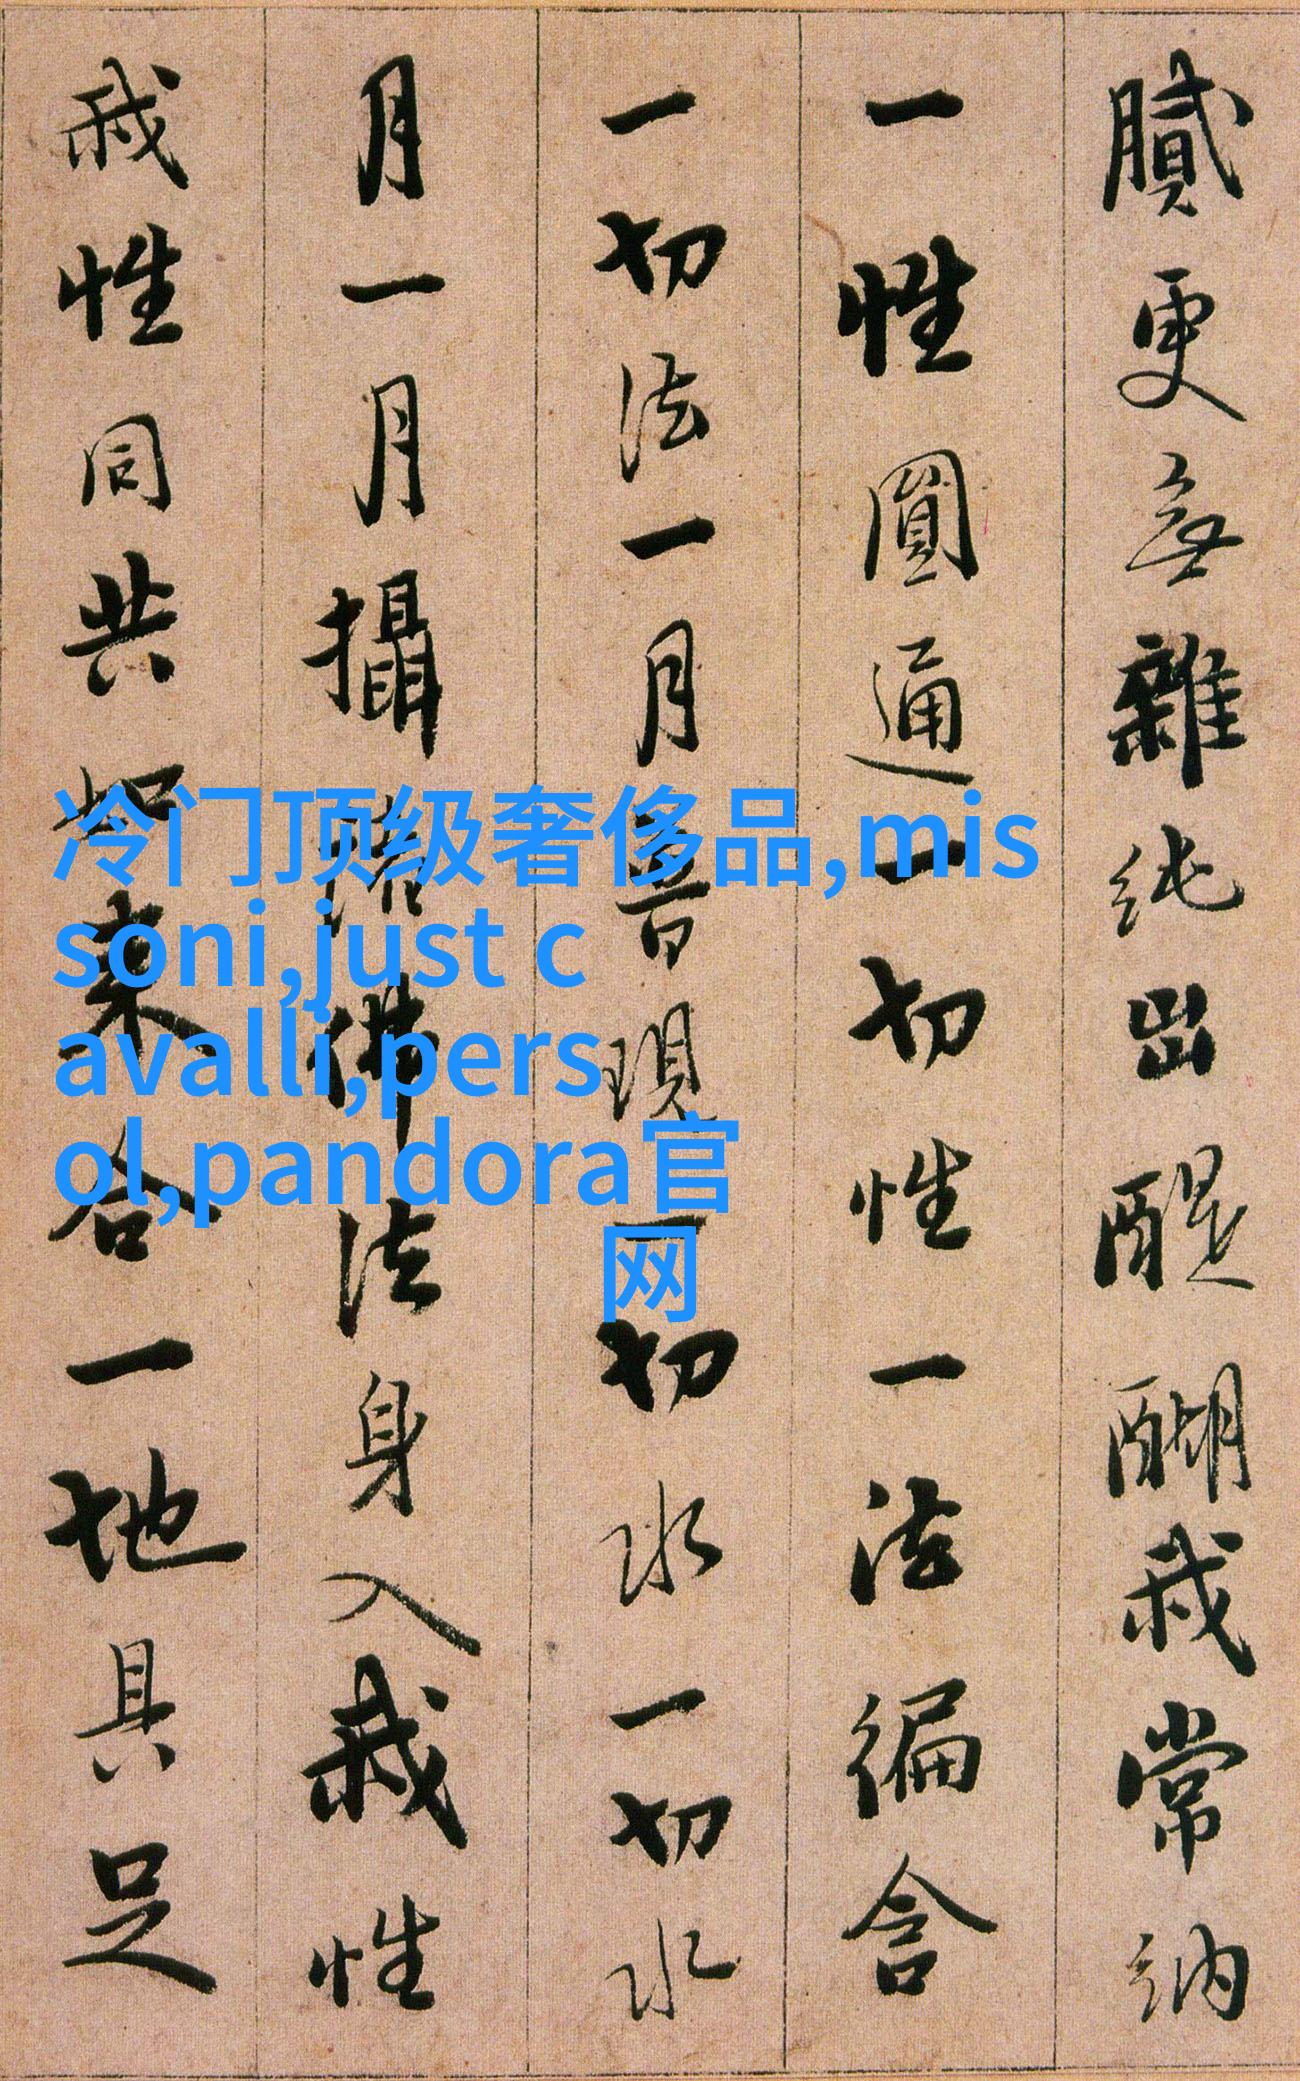 膩更無雜純出醍醐我常納
一性圓通一切性一法徧含
一切法一月普現一切水一切水
月一月攝諸佛法身入我性
我性同共如來合一地具足
冷门顶级奢侈品,mis
soni,just c
avalli,pers
ol,pandora官
网